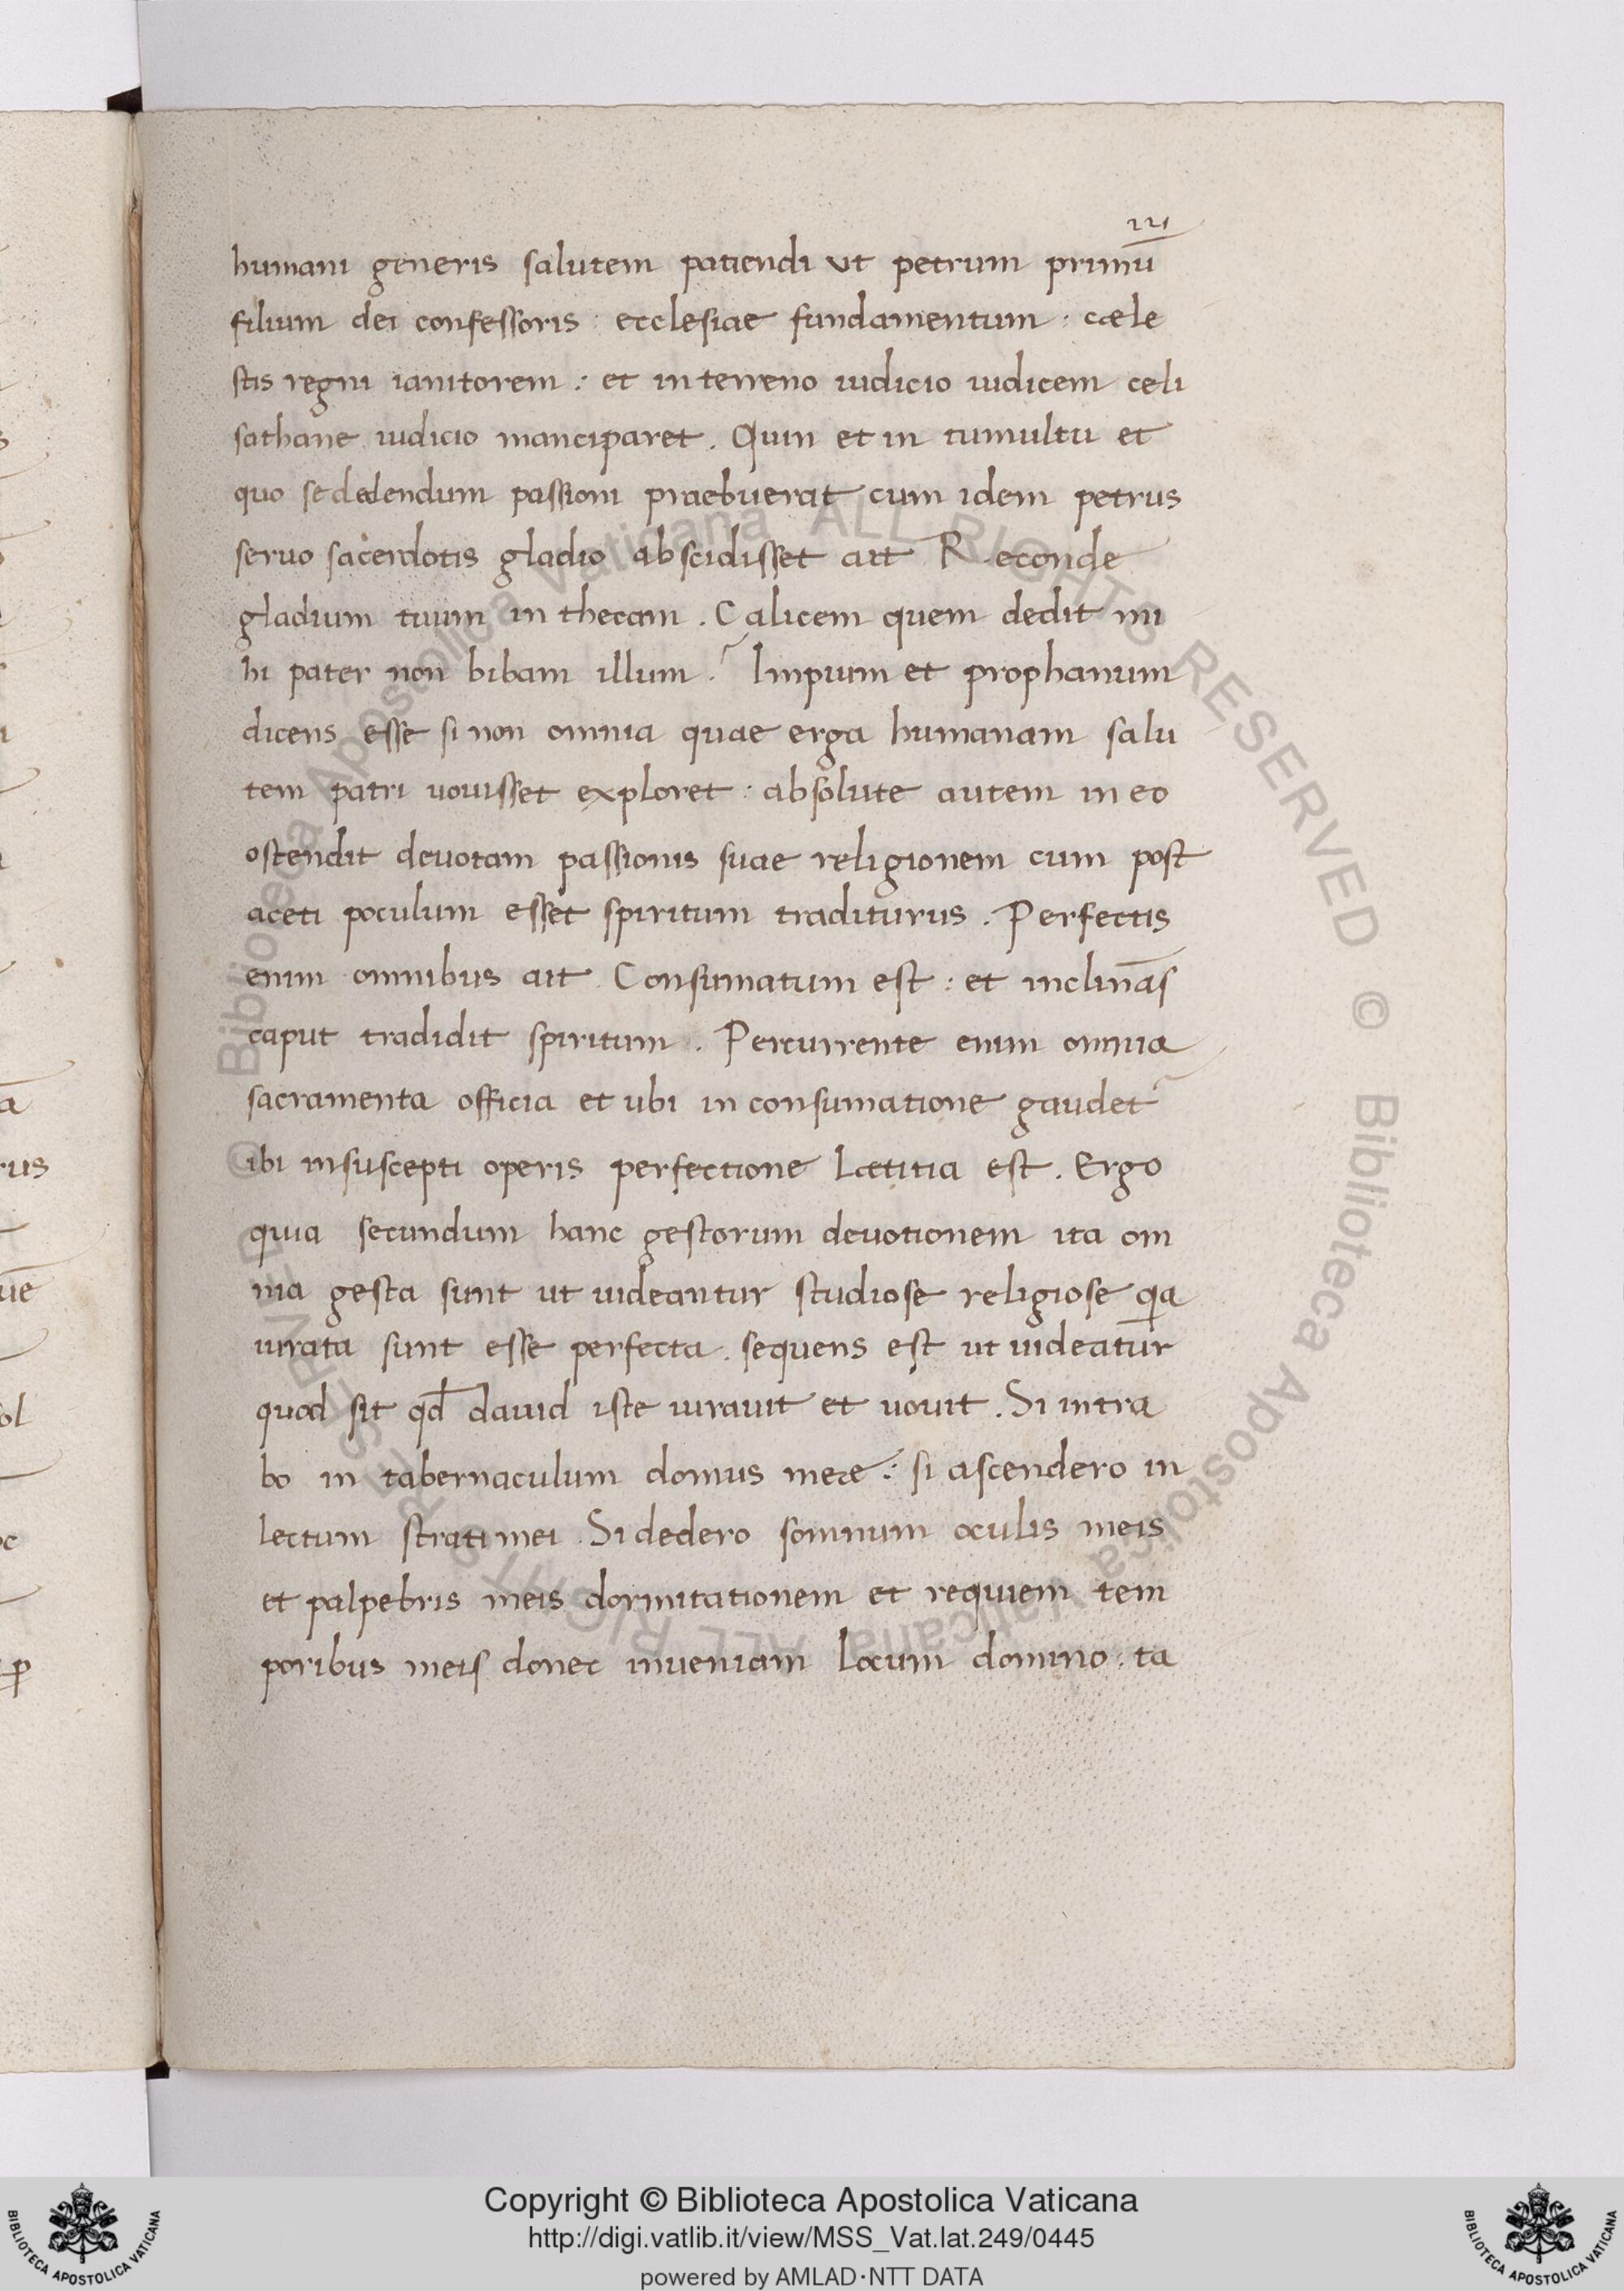 iii
humani generis salutem patiendi ut petrum primū
filium dei confessoris : ecclesiae fundamentum : cæle
stis regni ianitorem : et in terreno iudicio iudicem celi
sathane iudicio manciparet . Quin et in tumultu et
quo se dedendum passioni praebuerat cum idem petrus
seruo sacerdotis gladio abscidisset ait Reconde
gladium tuum in thecam . Calicem quem dedit mi
hi pater non bibam illum ? Impium et prophanum
dicens esse si non omnia quae erga humanam salu
tem patri uouisset exploret : absolute autem in eo
ostendit deuotam passionis suae religionem cum post
aceti poculum esset spiritum traditurus . Perfectis
enim omnibus ait Consumatum est : et inclinās
caput tradidit spiritum . Percurrente enim omnia
sacramenta officia et ubi in consumatione gaudet
ibi in suscepti operis perfectione Lætitia est . Ergo
quia secundum hanc gestorum deuotionem ita om
nia gesta sunt ut uideantur studiose religiose qa
iurata sunt esse perfecta . sequens est ut uideatur
quod sit qd dauid iste iurauit et uouit . Si intra
bo in tabernaculum domus meæ : si ascendero in
lectum strati mei . Si dedero somnum oculis meis
et palpebris meis dormitationem et requiem tem
poribus meis donec inueniam Locum domino . ta
ā
rus
uē
ol
oc
p
© Biblioteca Apostolica Vaticana ALL RIGHTS RESERVED © Biblioteca Apostolica Vaticana ALL RIGHTS RESERVED
Copyright © Biblioteca Apostolica Vaticana
http://digi.vatlib.it/view/MSS_Vat.lat.249/0445
powered by AMLAD·NTT DATA
BIBLIOTECA APOSTOLICA VATICANA
BIBLIOTECA APOSTOLICA VATICANA